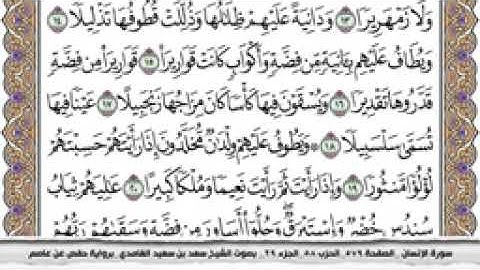 وَلَا زَمْهَرِيرًا ١٣ وَدَانِيَةً عَلَيْهِمْ ظِلَٰلُهَا وَذُلِّلَتْ قُطُوفُهَا تَذْلِيلًا ١٤
وَيُطَافُ عَلَيْهِم بِـَٔانِيَةٍ مِّن فِضَّةٍ وَأَكْوَابٍ كَانَتْ قَوَارِيرَا۠ ١٥ قَوَارِيرَا۟ مِن فِضَّةٍ
قَدَّرُوهَا تَقْدِيرًا ١٦ وَيُسْقَوْنَ فِيهَا كَأْسًا كَانَ مِزَاجُهَا زَنجَبِيلًا ١٧ عَيْنًا فِيهَا
تُسَمَّىٰ سَلْسَبِيلًا ١٨ ۞ وَيَطُوفُ عَلَيْهِمْ وِلْدَٰنٌ مُّخَلَّدُونَ إِذَا رَأَيْتَهُمْ حَسِبْتَهُمْ
لُؤْلُؤًا مَّنثُورًا ١٩ وَإِذَا رَأَيْتَ ثَمَّ رَأَيْتَ نَعِيمًا وَمُلْكًا كَبِيرًا ٢٠ عَٰلِيَهُمْ ثِيَابُ
سُندُسٍ خُضْرٌ وَإِسْتَبْرَقٌ ۖ وَحُلُّوٓا۟ أَسَاوِرَ مِن فِضَّةٍ وَسَقَىٰهُمْ رَبُّهُمْ
سورة الإنسان , الصفحة ٥٧٩ , الحزب ٥٨ , الجزء ٢٩ , بصوت الشيخ سعد بن سعيد الغامدي , برواية حفص عن عاصم